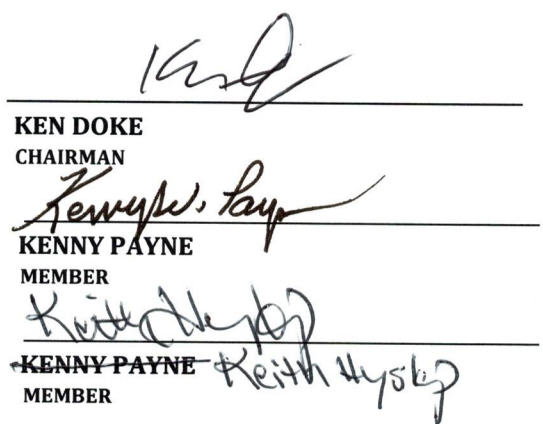 KEN DOKE
CHAIRMAN
Kenny W. Payne
KENNY PAYNE
MEMBER
Keith Hyslip
KENNY PAYNE Keith Hyslip
MEMBER